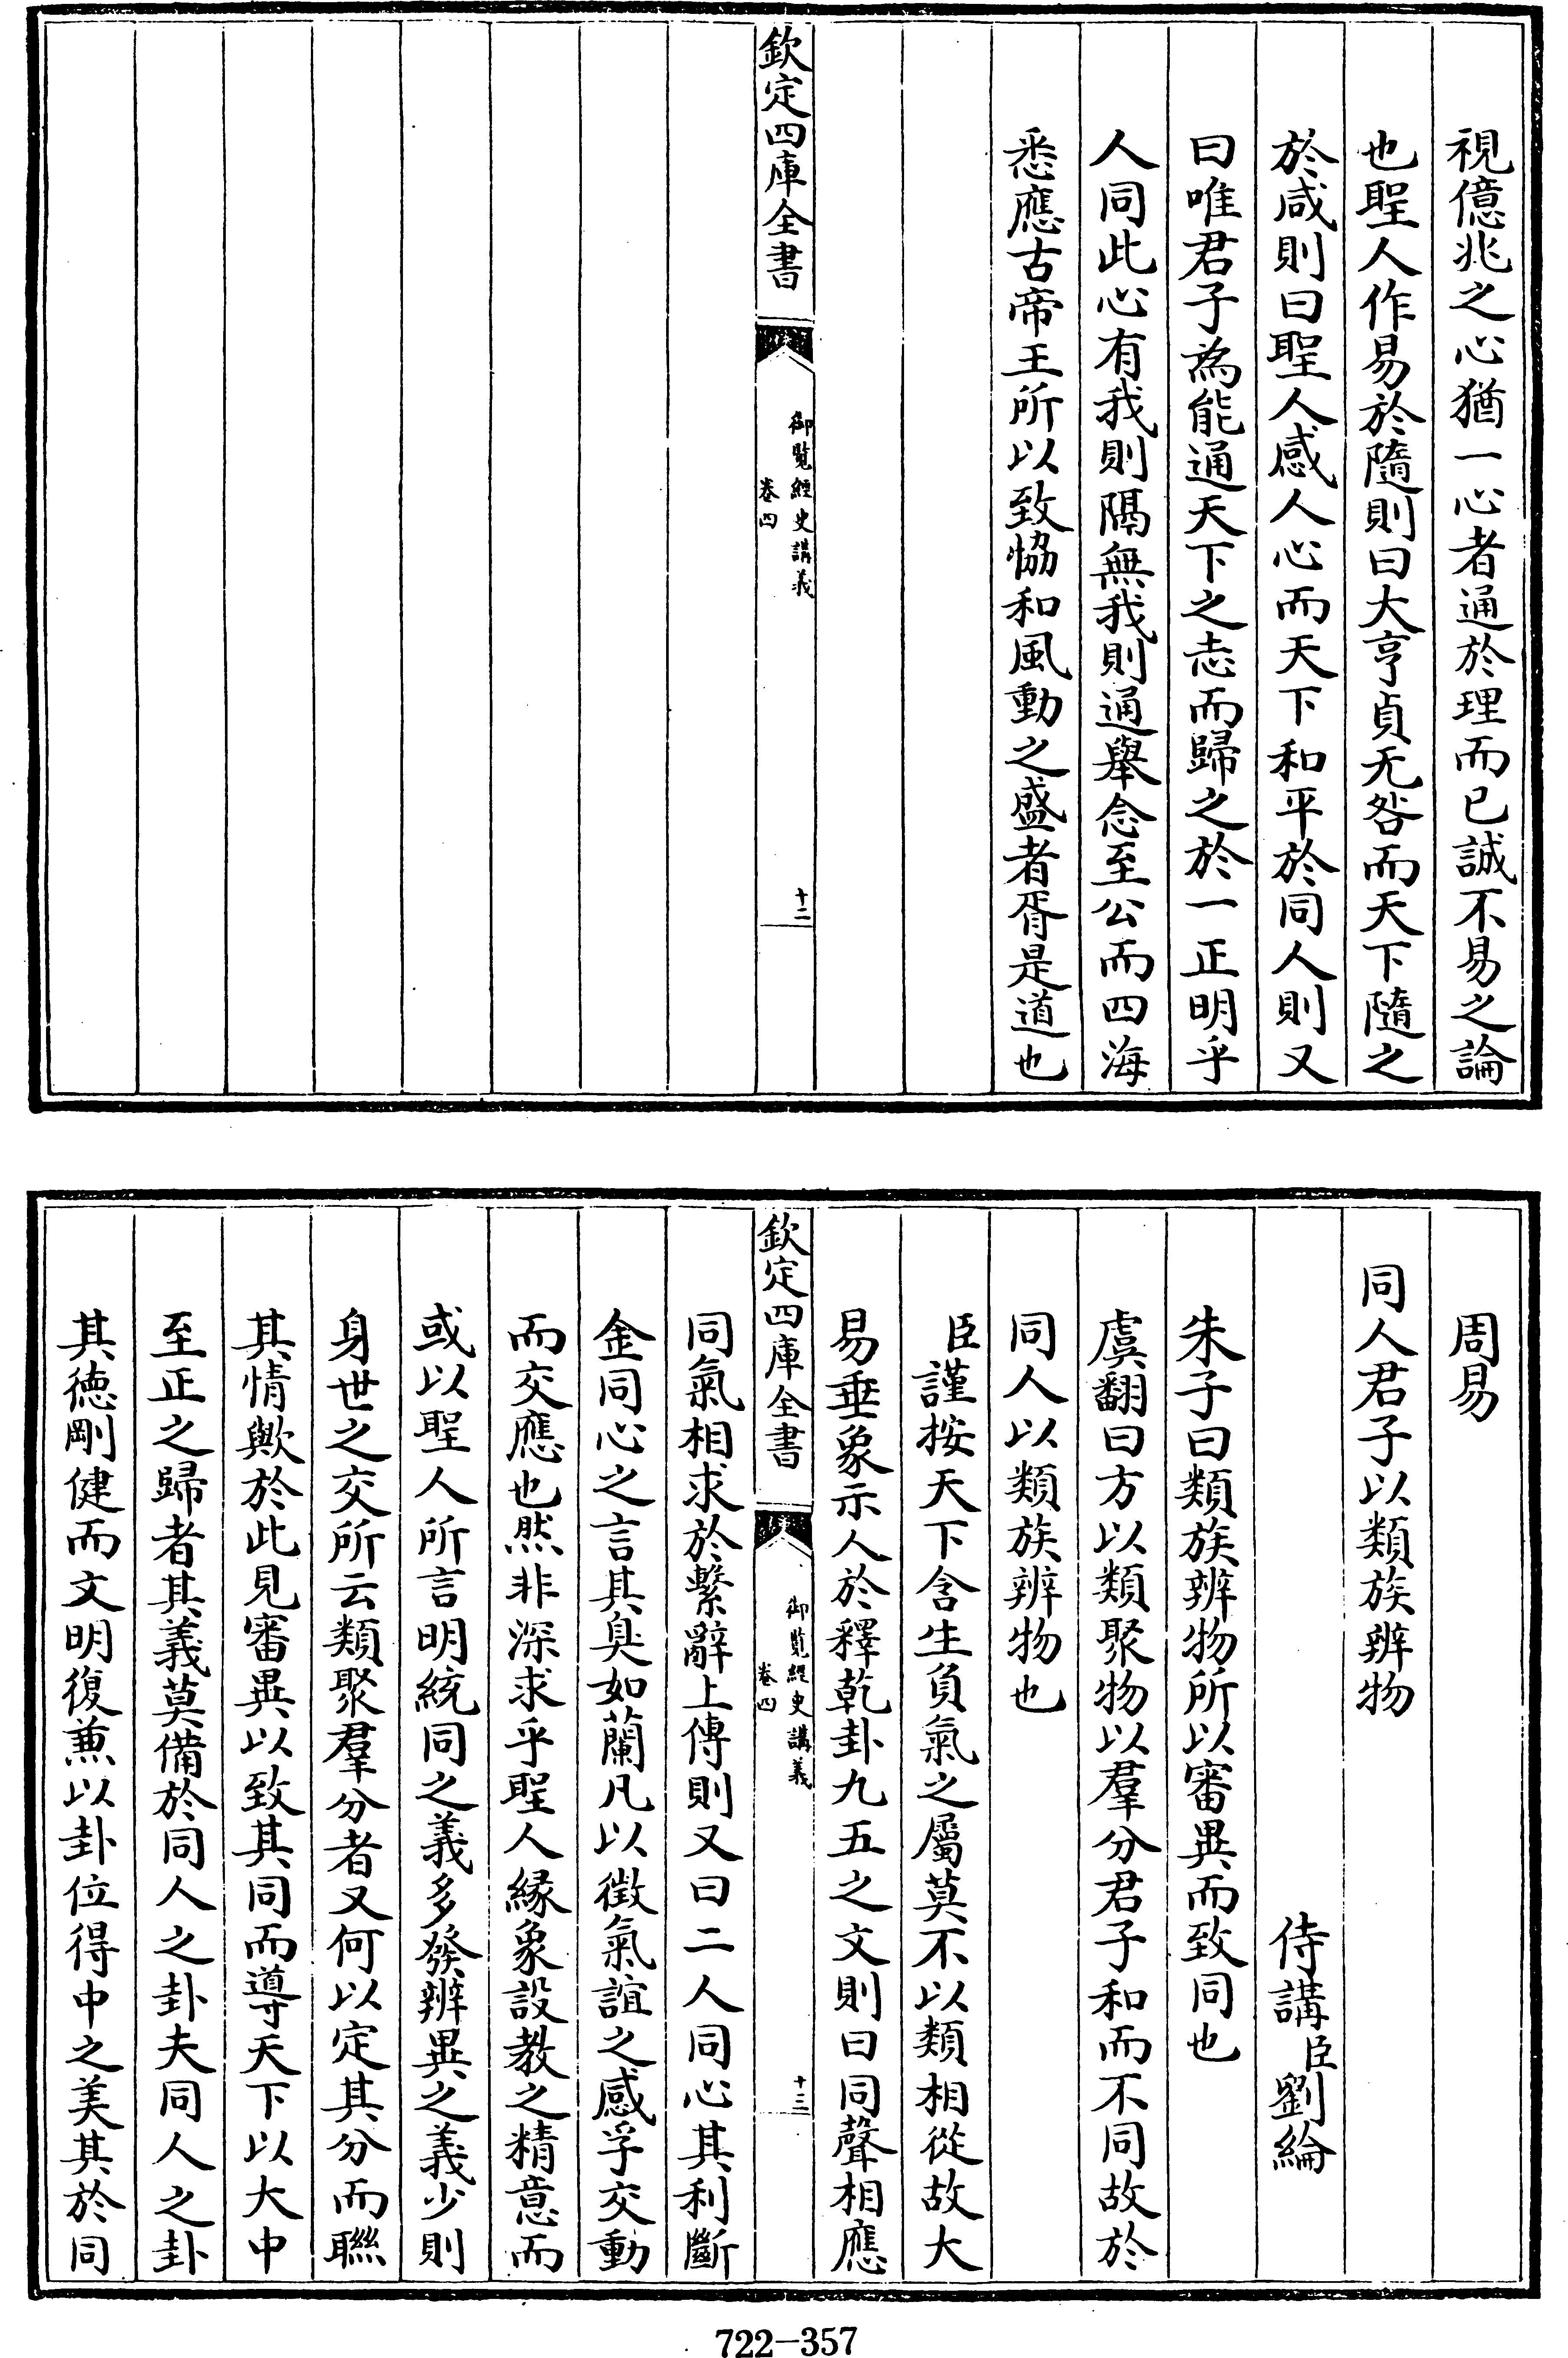 視億兆之心猶一心者通於理而已誠不易之論
也聖人作易於隨則曰大亨貞无咎而天下隨之
於咸則曰聖人感人心而天下和平於同人則又
曰唯君子為能通天下之志而歸之於一正明乎
人同此心有我則隔無我則通舉念至公而四海
悉應古帝王所以致恊和風動之盛者胥是道也
欽定四庫全書
御覽經史講義
卷四
十二
周易
同人君子以類族辨物
侍講臣劉綸
朱子曰類族辨物所以審異而致同也
虞翻曰方以類聚物以羣分君子和而不同故於
同人以類族辨物也
臣謹按天下含生負氣之屬莫不以類相從故大
易垂象示人於釋乾卦九五之文則曰同聲相應
欽定四庫全書
御覽經史講義
卷四
十三
同氣相求於繫辭上傳則又曰二人同心其利斷
金同心之言其臭如蘭凡以徵氣誼之感孚交動
而交應也然非深求乎聖人緣象設教之精意而
或以聖人所言明統同之義多發辨異之義少則
身世之交所云類聚羣分者又何以定其分而聯
其情歟於此見審異以致其同而導天下以大中
至正之歸者其義莫備於同人之卦夫同人之卦
其德剛健而文明復兼以卦位得中之美其於同
722-357